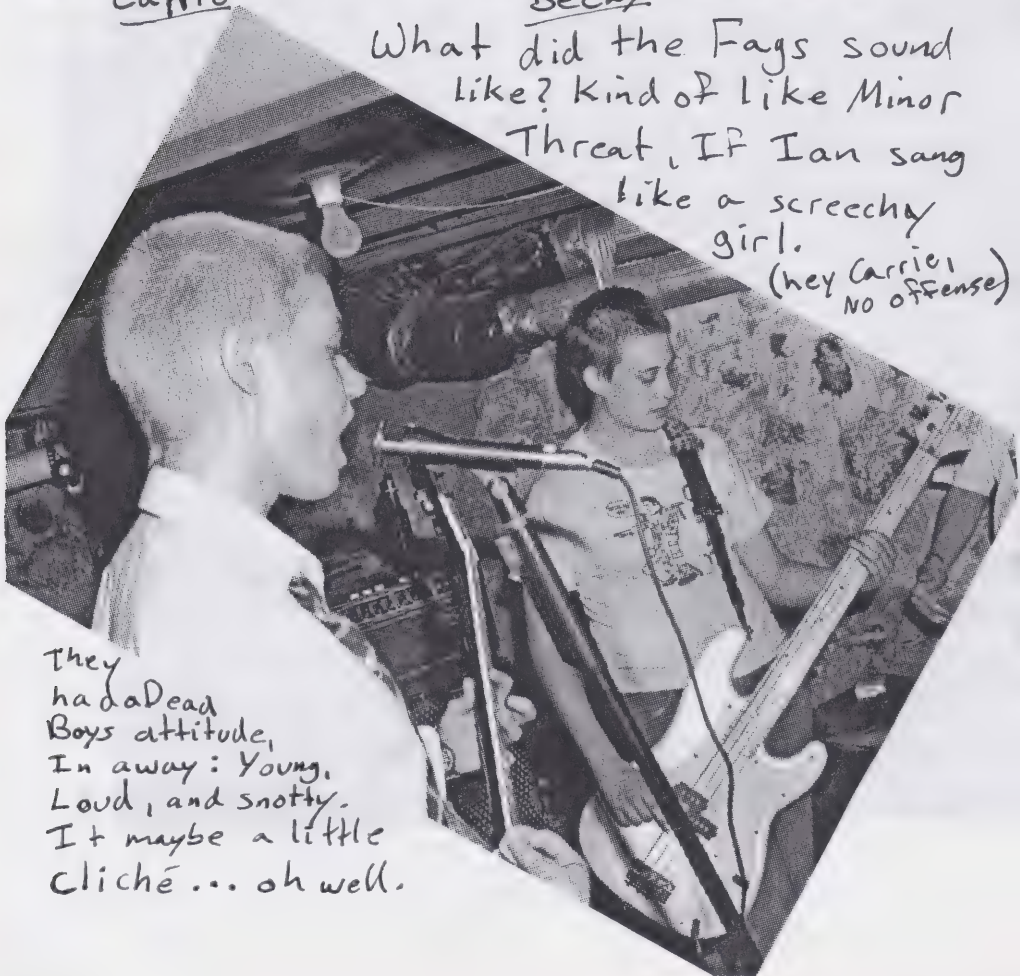 What did the Fags sound
like? Kind of like Minor
Threat, If Ian sang
like a screechy
girl.
(hey Carrie,
No offense)
They
had a Dead
Boys attitude,
In away: Young,
Loud, and snotty.
It maybe a little
cliché... oh well.